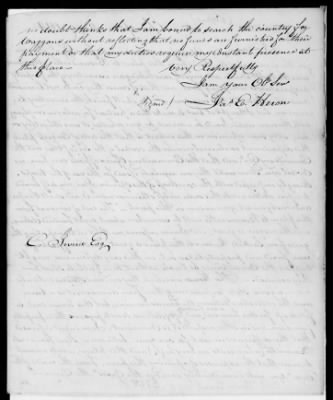 no doubt thinks that I am bound to search the country for
waggons without reflecting that no funds are furnished for their
payment or that my duties require my constant presence at
this place
Very Respectfully
I am your Obt Sevt
Signed / Jas E Heron
C. Esqr